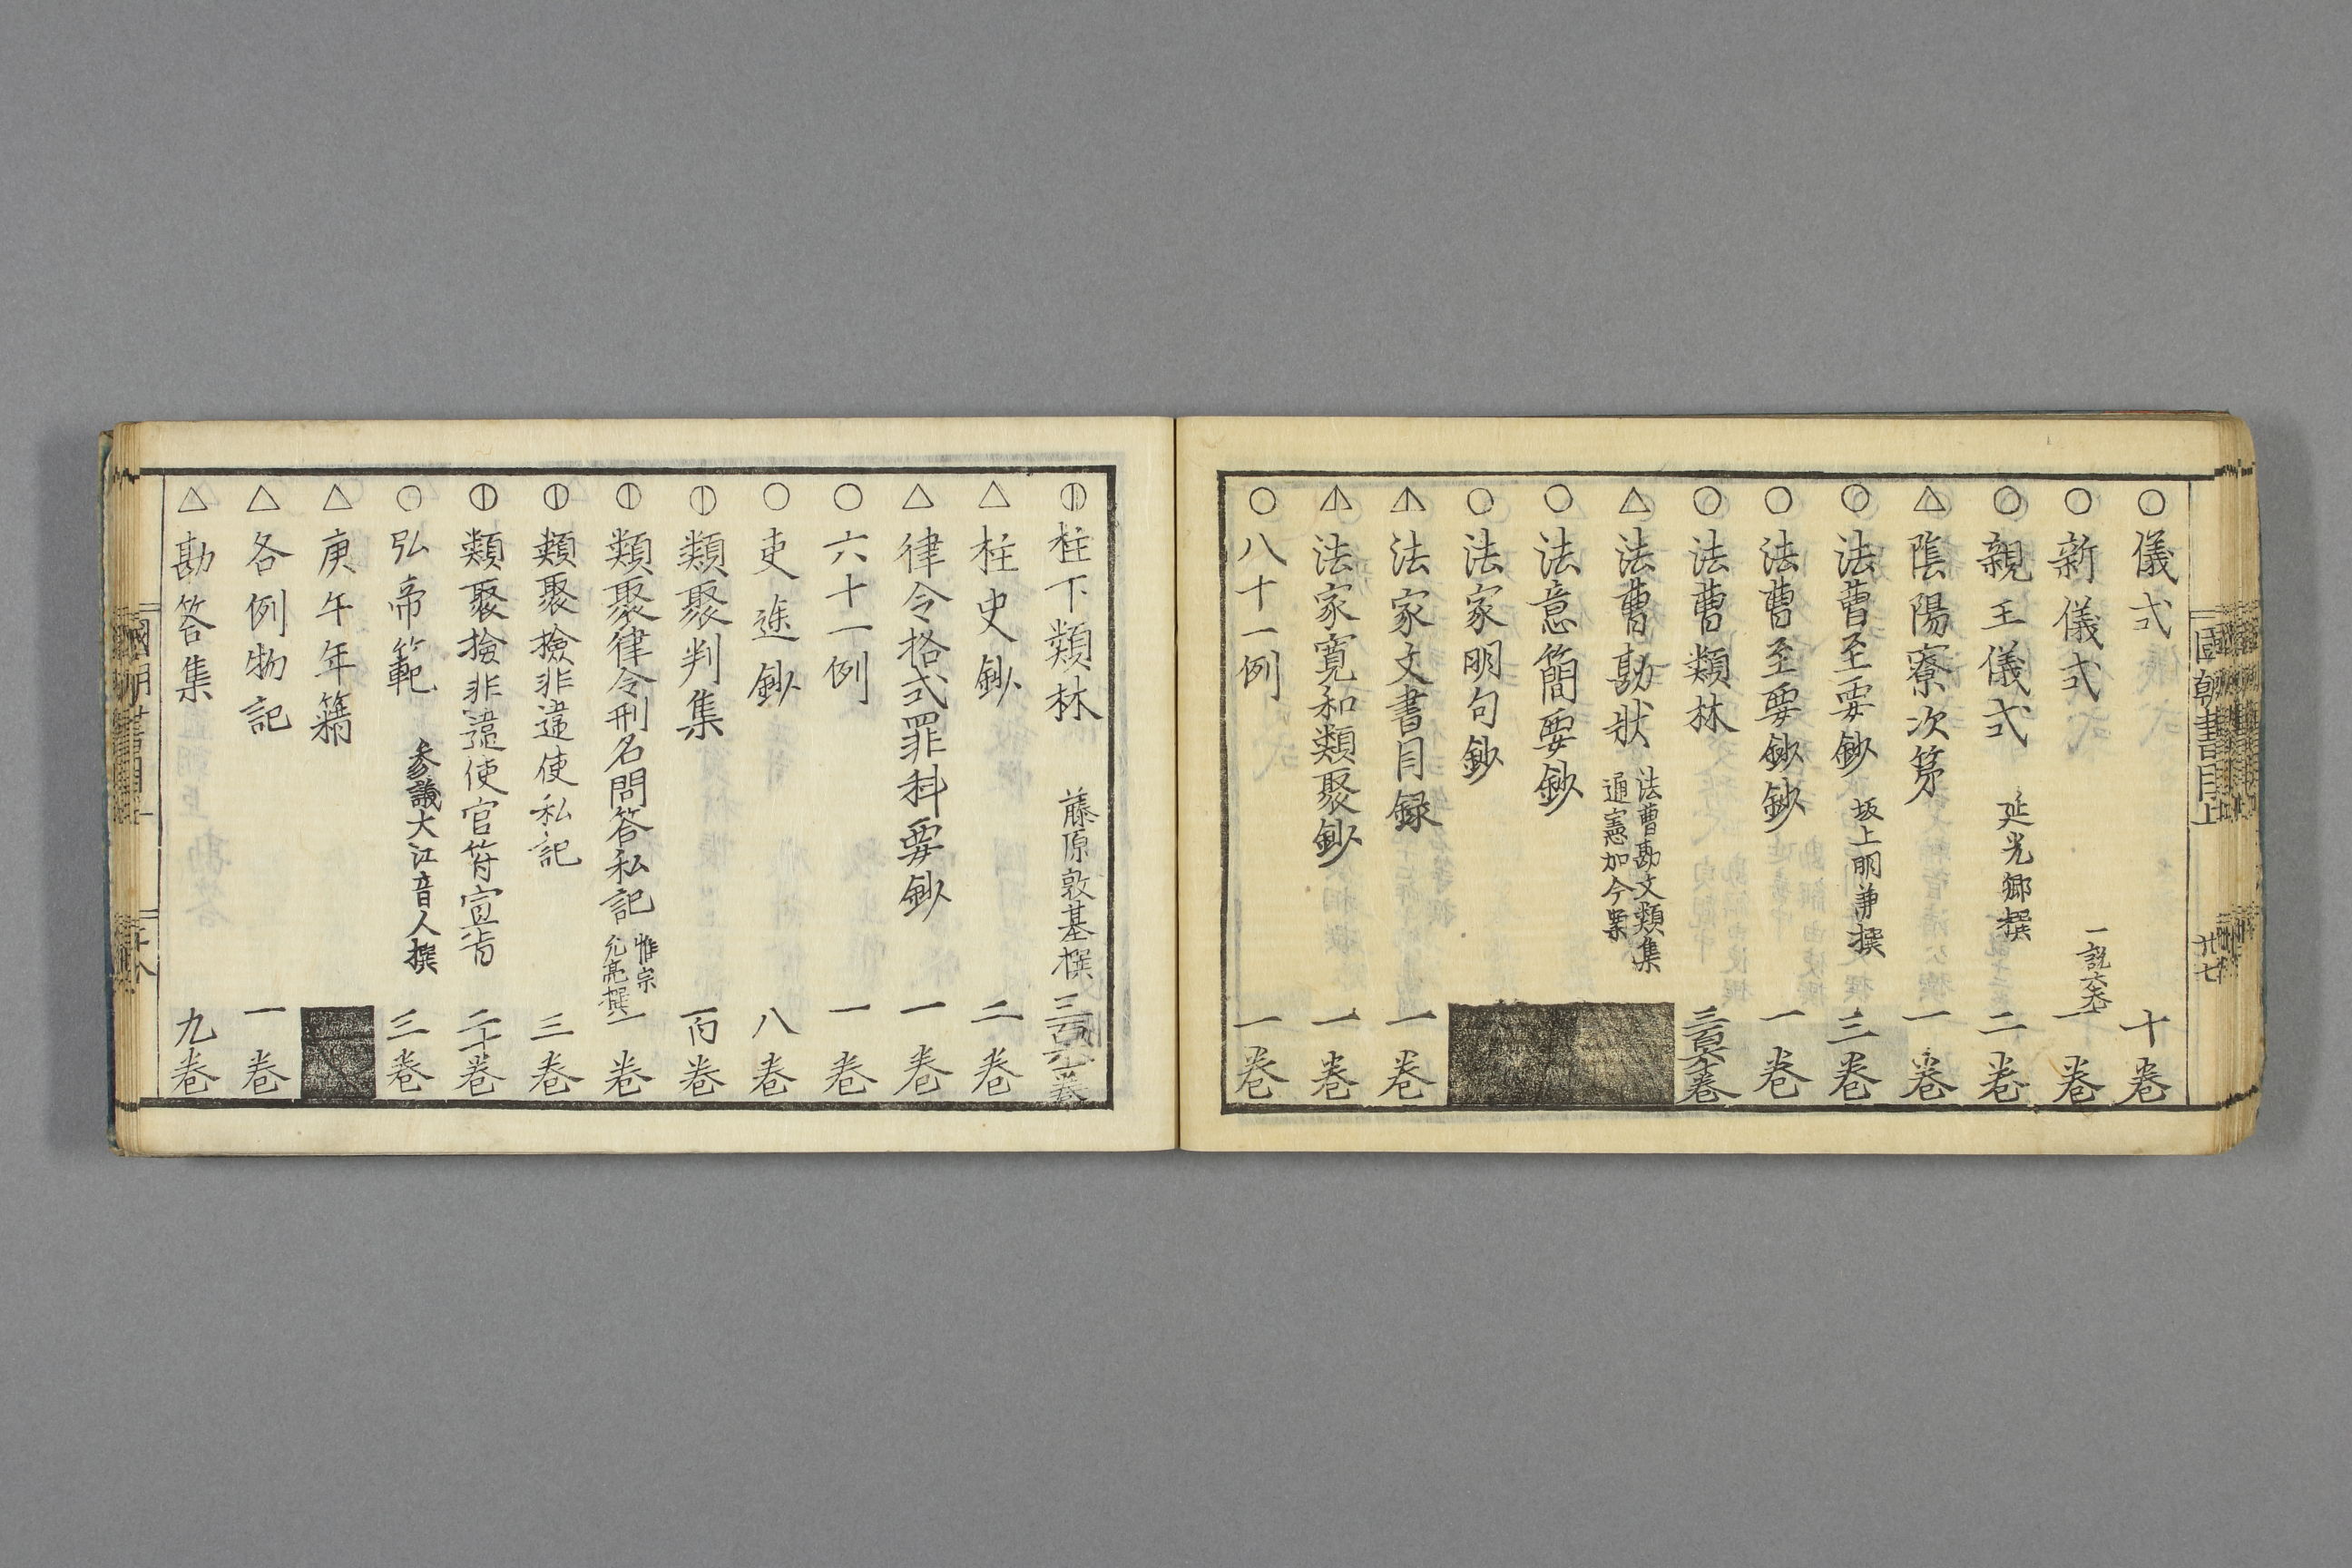 國朝書目上
廿七
○儀式 十卷
○新儀式 一説六卷 一卷
○親王儀式 延光卿撰 二卷
△陰陽寮次第 一卷
○法曹至要鈔 坂上明兼撰 三卷
○法曹至要鈔鈔 一卷
○法曹類林 卷
△法曹勘状 法曹勘文類集
通憲加今案
○法意簡要鈔
○法家明句鈔
△法家文書目録 一卷
△法家寛和類聚鈔 一卷
○八十一例 一卷
柱下類林 藤原敦基撰 卷
△柱史鈔 二卷
△律令格式罪科要鈔 一卷
○六十一例 一卷
○吏途鈔 八卷
類聚判集 百卷
類聚律令刑名問答私記 惟宗
允亮撰 一卷
類聚撿非違使私記 三卷
類聚撿非違使官符宣旨 二十卷
○弘帝範 参議大江音人撰 三卷
△庚午年籍
△各例物記 一卷
△勘答集 九卷